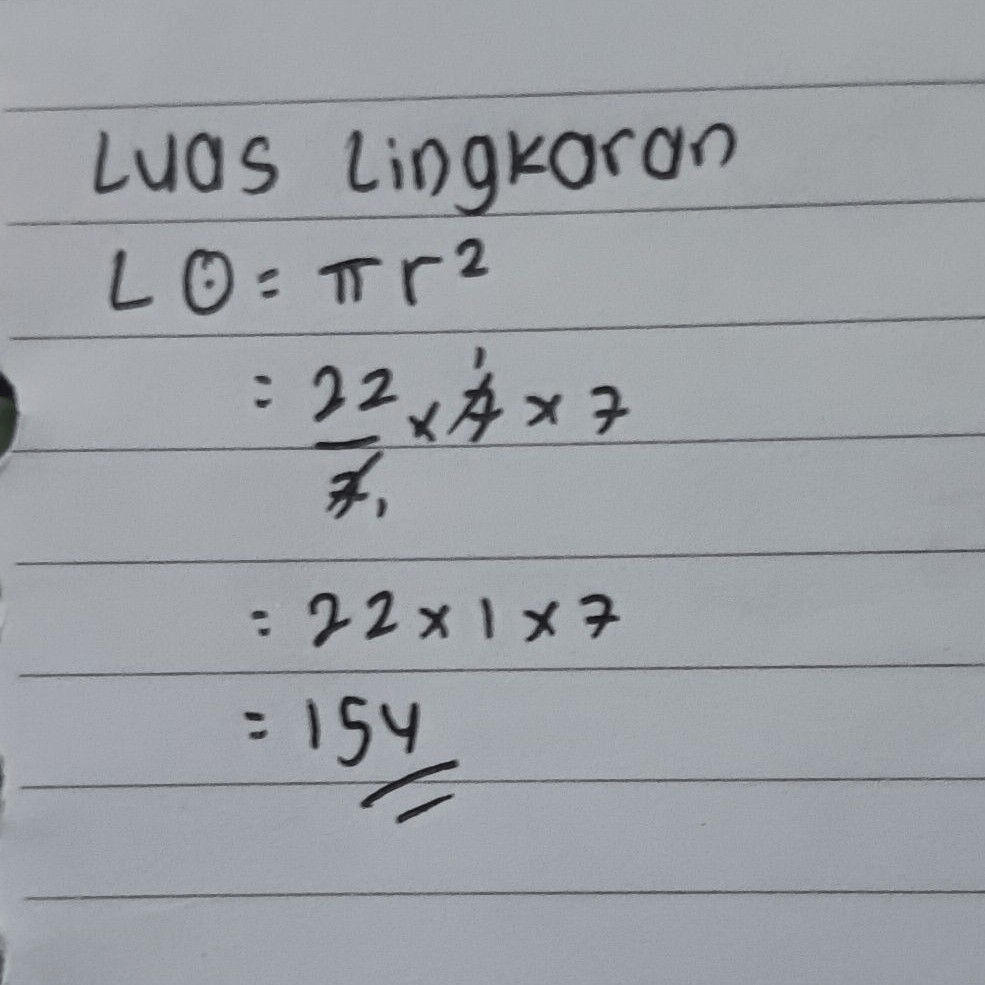 Luas Lingkaran
L ⊙ = πr²
= 22/7 1 x 7 1 x 7
= 22 x 1 x 7
= 154